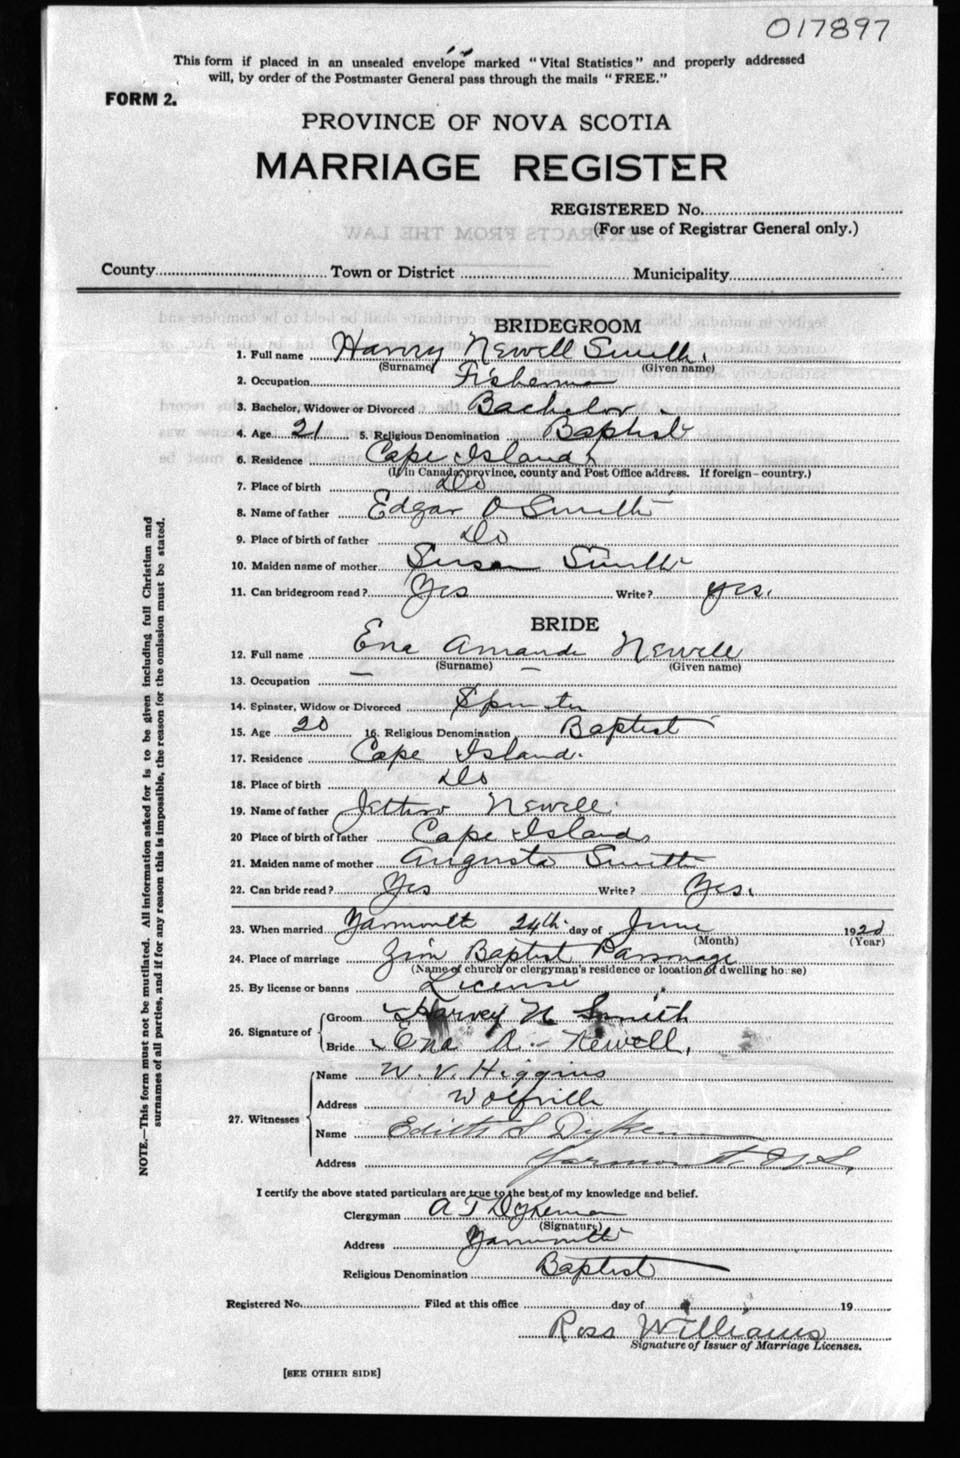 017897
This form if placed in an unsealed envelope marked "Vital Statistics" and properly addressed
will, by order of the Postmaster General pass through the mails "FREE."
FORM 2.
PROVINCE OF NOVA SCOTIA
MARRIAGE REGISTER
REGISTERED No.
(For use of Registrar General only.)
County Town or District Municipality
BRIDEGROOM
1. Full name Harvey Newell Smith.
(Surname) (Given name)
2. Occupation Fisherman
3. Bachelor, Widower or Divorced Bachelor
4. Age 21 5. Religious Denomination Baptist
6. Residence Cape Island
(If in Canada, province, county and Post Office address. If foreign - country.)
7. Place of birth Do
8. Name of father Edgar O Smith
9. Place of birth of father Do
10. Maiden name of mother Susan Smith
11. Can bridegroom read? Yes Write? yes.
BRIDE
12. Full name Ena Amanda Newell
(Surname) (Given name)
13. Occupation — —
14. Spinster, Widow or Divorced Spinster
15. Age 20 16. Religious Denomination Baptist
17. Residence Cape Island.
18. Place of birth Do
19. Name of father Jethro Newell.
20 Place of birth of father Cape Island
21. Maiden name of mother Augusta Smith
22. Can bride read? Yes Write? Yes.
23. When married Yarmouth 24th day of June 1920
(Month) (Year)
24. Place of marriage Zion Baptist Parsonage
(Name of church or clergyman's residence or location of dwelling house)
25. By license or banns License
26. Signature of Groom Harvey N Smith
Bride Ena A. Newell.
27. Witnesses Name W. V. Higgins
Address Wolfville
Name Edith S Dykeman
Address Yarmouth. N.S.
I certify the above stated particulars are true to the best of my knowledge and belief.
Clergyman A T Dykeman
(Signature)
Address Yarmouth
Religious Denomination Baptist
Registered No. Filed at this office day of 19
Ross Williams
Signature of Issuer of Marriage Licenses.
[SEE OTHER SIDE]
NOTE.—This form must not be mutilated. All information asked for is to be given including full Christian and
surnames of all parties, and if for any reason this is impossible, the reason for the omission must be stated.
EXTRACTS FROM THE LAW